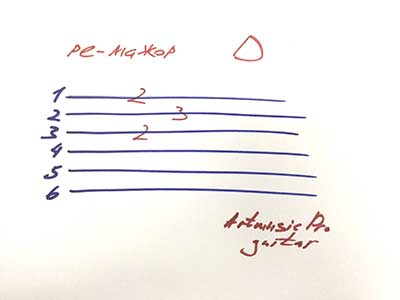 ре-мажор D
1 2
2 3
3 2
4
5
6
Artmusic Pro
guitar